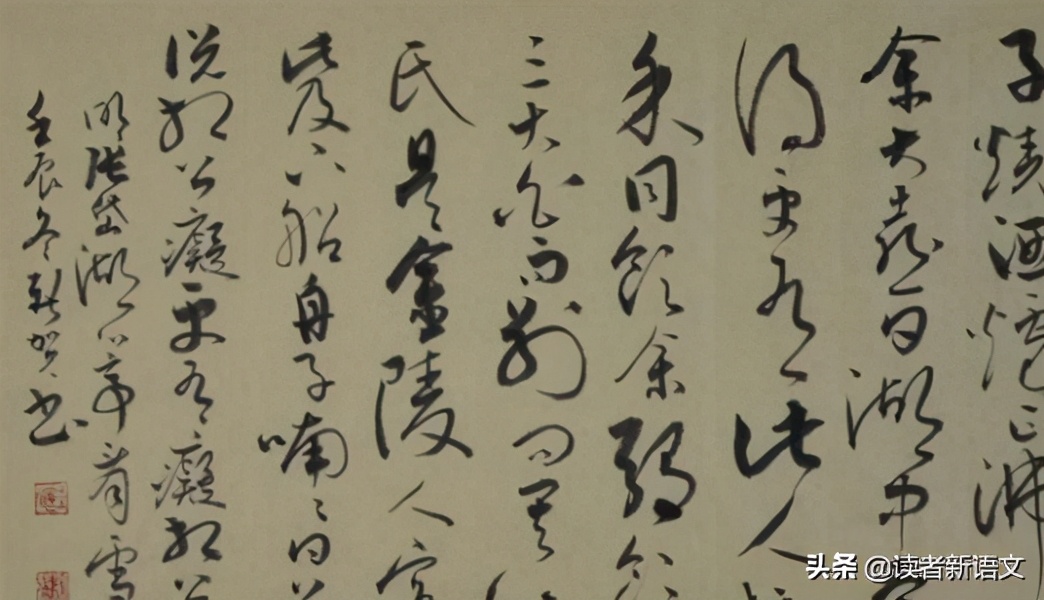 子燒酒爐正沸
余大喜曰湖中
得更有此人
余同飲余強飲
三大白而別問其
氏是金陵人客
此及下船舟子喃喃曰
說相公癡更有癡相公
明張岱湖心亭看雪
壬辰冬賀書
头条 @读者新语文